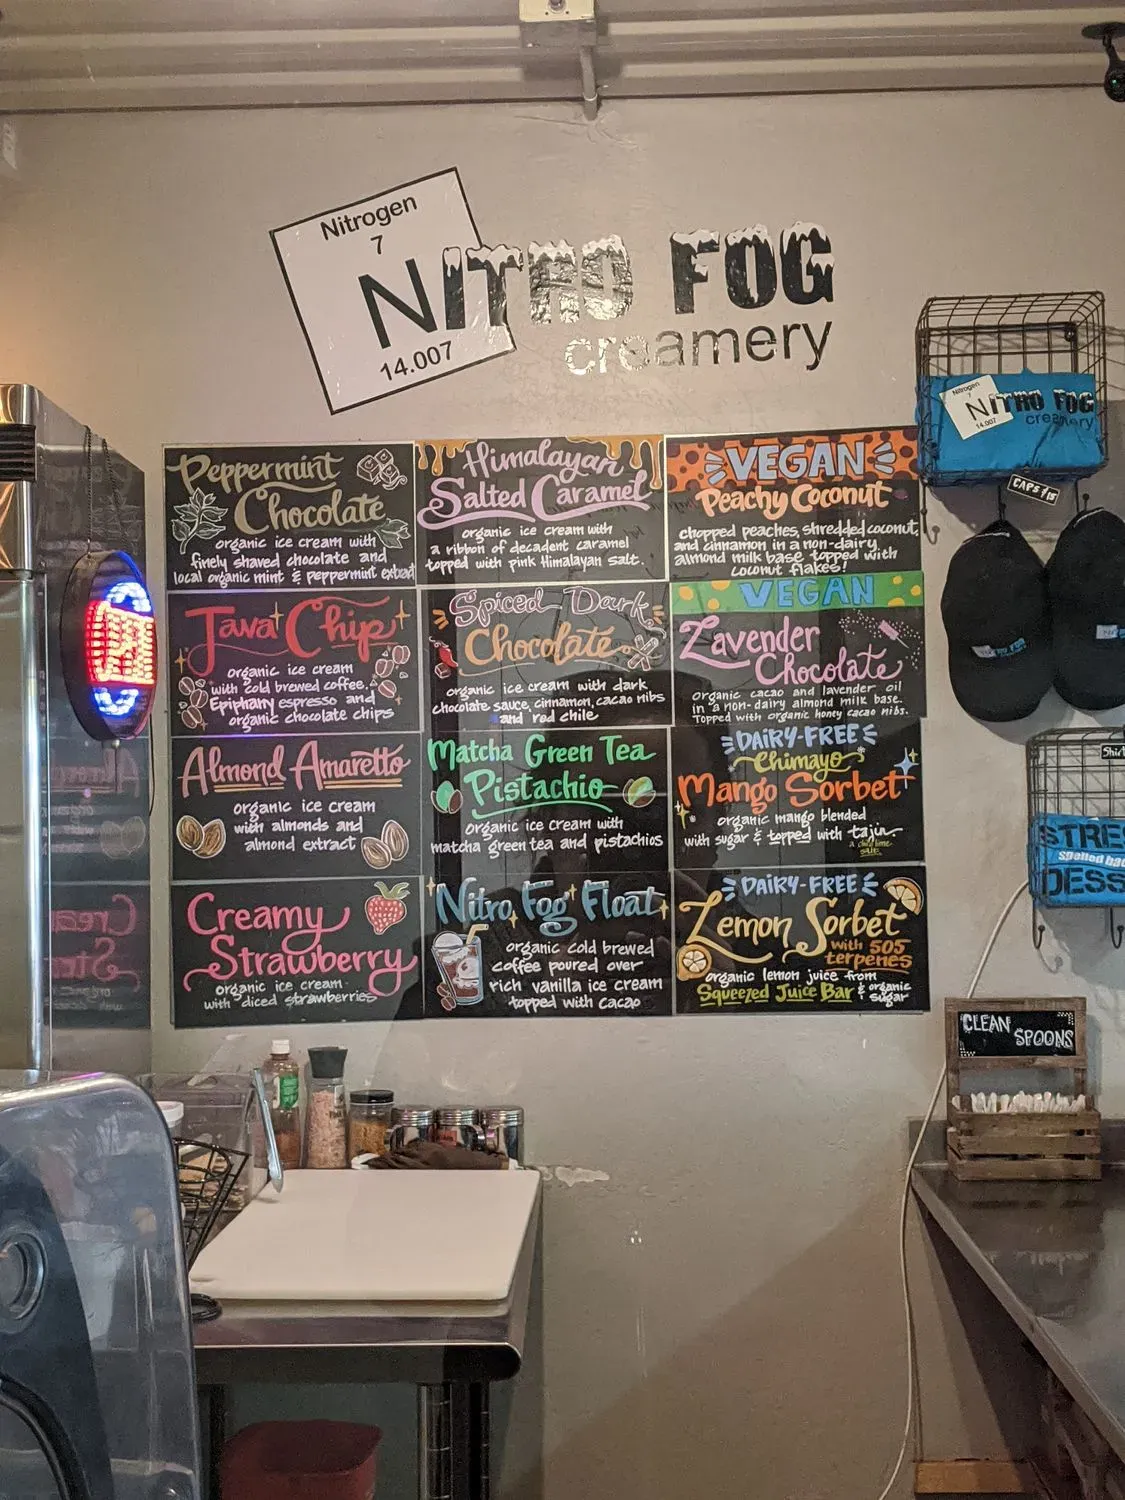 Nitrogen
7
NITRO FOG
14.007
creamery
Peppermint
Chocolate
organic ice cream with
finely shaved chocolate and
local organic mint & peppermint extract
Himalayan
Salted Caramel
organic ice cream with
a ribbon of decadent caramel
topped with pink Himalayan salt.
VEGAN
Peachy Coconut
chopped peaches, shredded coconut,
and cinnamon in a non-dairy
almond milk base topped with
coconut flakes!
Java Chip
organic ice cream
with cold brewed coffee,
Epiphany espresso and
organic chocolate chips
Spiced Dark
Chocolate
organic ice cream with dark
chocolate sauce, cinnamon, cacao nibs
and red chile
VEGAN
Lavender
Chocolate
organic cacao and lavender oil
in a non-dairy almond milk base.
Topped with organic honey cacao nibs.
Almond Amaretto
organic ice cream
with almonds and
almond extract
Matcha Green Tea
Pistachio
organic ice cream with
matcha green tea and pistachios
DAIRY-FREE
Chimayo
Mango Sorbet
organic mango blended
with sugar & topped with tajin
a chili lime
salt
Creamy
Strawberry
organic ice cream
with diced strawberries
Nitro Fog Float
organic cold brewed
coffee poured over
rich vanilla ice cream
topped with cacao
DAIRY-FREE
Lemon Sorbet
with 505
terpenes
organic lemon juice from
Squeezed Juice Bar & organic
sugar
Nitrogen
7
NITRO FOG
14.007
creamery
CAPS $15
STRES
spelled bac
DESS
CLEAN
SPOONS